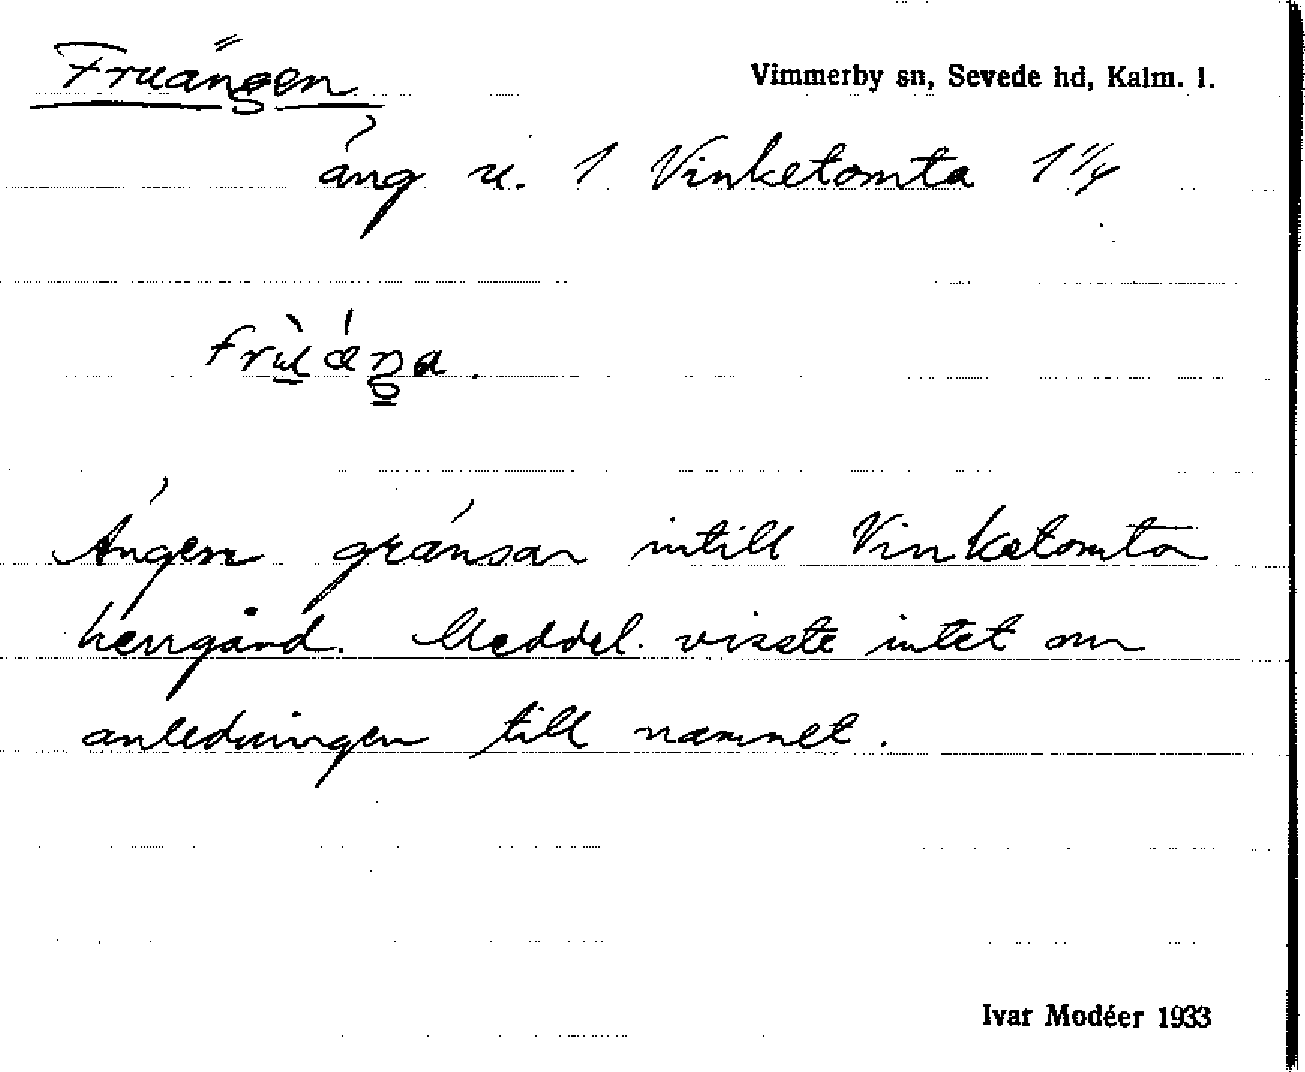 Fruängen
Vimmerby sn, Sevede hd, Kalm. l.
äng u. 1 Vinketomta 1 1/4
Ängen gränsar intill Vinketomta
herrgård. Meddel. visste intet om
anledningen till namnet.
Ivar Modéer 1933